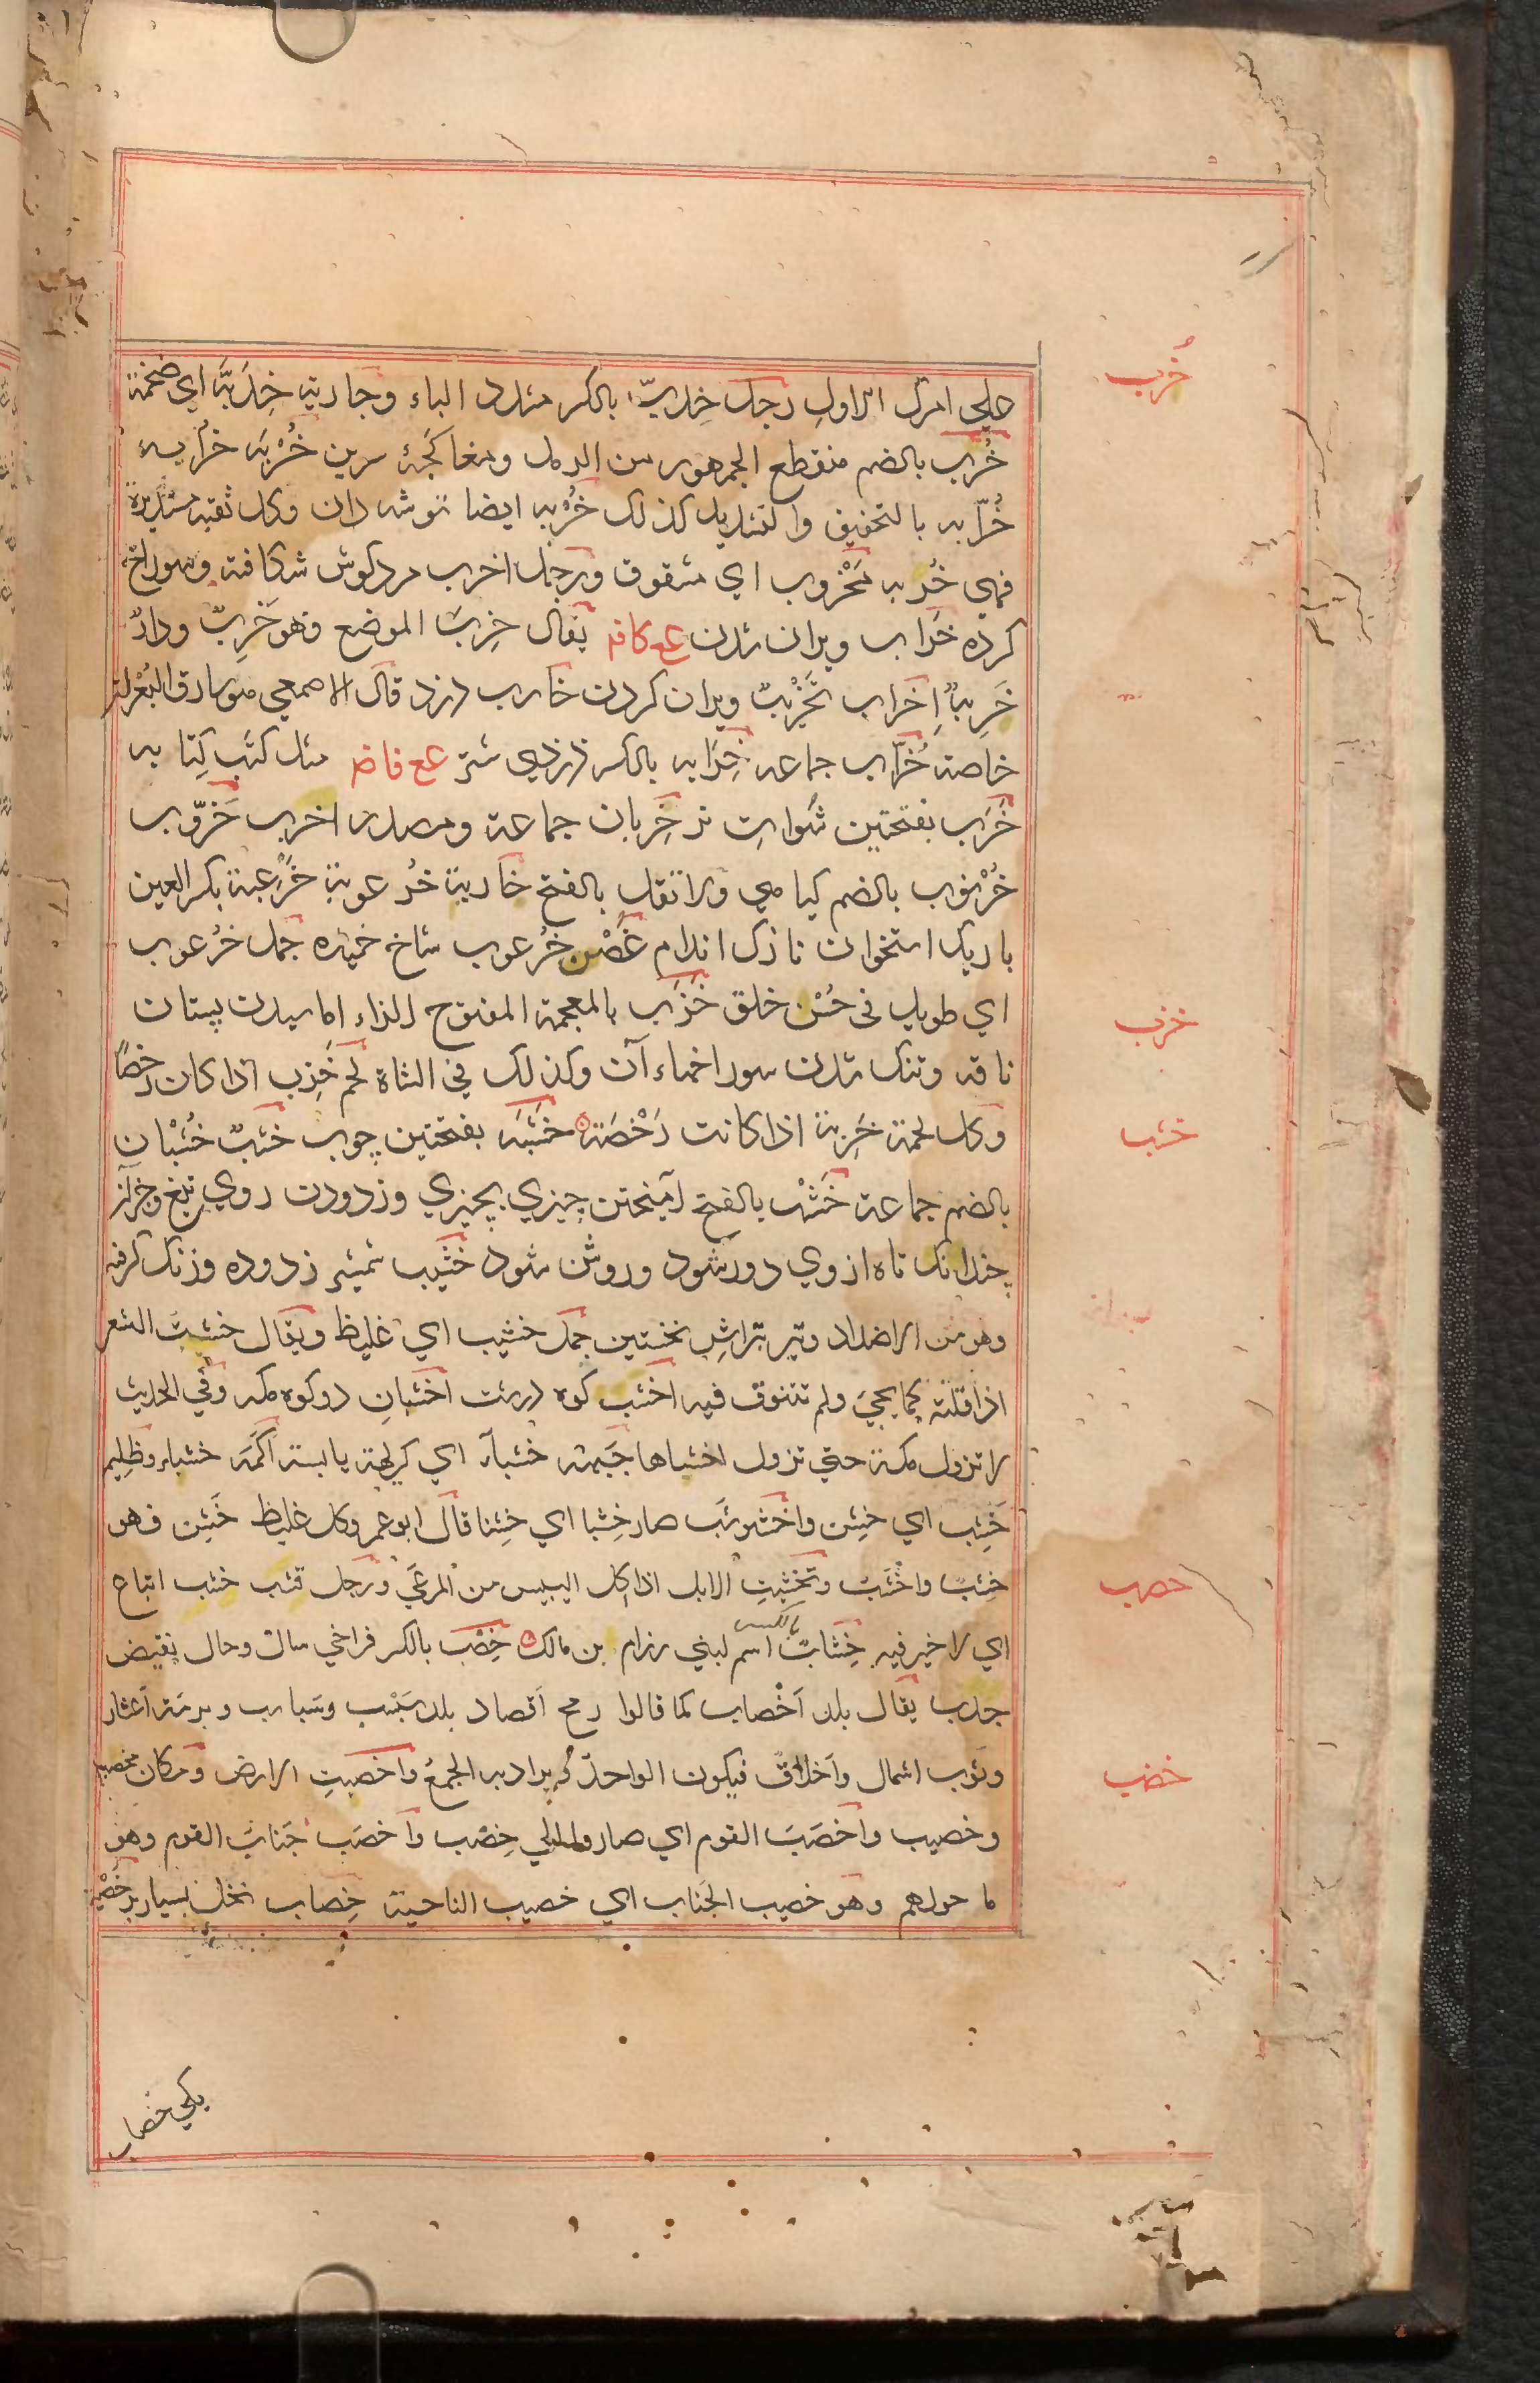 علی امرك الاول رجل خِدَبّ بالکسر مشدد الباء وجارية خِدَبَّة اي ضخمة
خُرب بالضم منقطع الجمهور من الرمل ومغاکچهٔ سرین خُرْبَه خرابه
خُرّابه بالتخفیف والتشدید کذلک خُرْبه ایضا توشه دان وکل ثقبه مستدیرة
فهي خُربه مَخْروب اي مثقوب ورجل اخرب مرد کوش شکافته وسوراخ
کرده خَراب ویران شدن عع کافه یقال خرِبَ الموضع فهو خَرِبٌ ودارٌ
خَرِبةٌ اِخراب تَخْریبٌ ویران کردن خارب دزد قال الاصمعي هو سارق البُعْران
خاصة خُرّاب جماعه خِرابه بالکسر دزدی شتر عع فاضـ مثل کتَب کِتابه
خَرَب بفتحتین شوات نر خِربان جماعة ومصدر اخرب خَرّوب
خُرْنوب بالضم کیاهي ولا تقل بالفتح جارية خُرعوبة خَرْعبة بکسر العین
باریك استخوان نازك اندام غُصْن خُرعوب شاخ خمیده جمل خُرعوب
اي طویل في حُسْن خلق خَزَب بالمعجمة المفتوح الزاء اماسیدن پستان
ناقه وتنك شدن سوراخهاء آن وکذلك في الشاة لحم خَزِب اذا کان رخصًا
وکل لحمة خَزِبة اذا کانت رَخْصَة خَشَبَه بفتحتین چوب خشبٌ خُشْبان
بالضم جماعة خَشْب بالفتح آمیختن چیزي بچیزي وزدودن روي تیغ وجز آن
چندانك تاه از وي دور شود وروشن شود خشیب شمشیر زدوده وزنك کرفته
وهو من الاضداد وتیر بتراشِ نخستین جمل خشیب اي غلیظ ویقال خشبت الشعر
اذا قلته کما یجيء ولم تتنوق فیه اخشب کوه درشت اخشبان دو کوه مکه وفي الحدیث
لا تزول مکة حتي تزول اخشباها جَبهة خشبآء اي کریهة یابسة اکَمَة خشباء وظلیم
خَشِب اي خشِن واخشوشَب صار خشِبا اي خشِنا قال ابو عمرو کل غلیظ خَشِن فهو
خشِبٌ واخْشَبٌ وتخشبتِ الابل اذا اکل الیبیس من المرعَي ورجل قشب خشب اتباع
اي لا خیر فیه خِشابٌ بالکسر اسم لبني رزام بن مالك خِصْب بالکسر فراخي سال وحال نقیض
جدب یقال بلد اَخْصاب کما قالوا رمح اَقصاد بلد سَبْسَب وسَباسب وبرمة اَعشار
وثوب اسمال واَخلاقٌ فیکون الواحد یراد به الجمعُ واخصبتِ الارض ومکان مخصب
وخصیب واخصَبَ القوم اي صاروا الی خِصْب واخصَب جَنابُ القوم وهو
ما حولهم وهو خصیب الجَناب اي خصیب الناحیة خِصاب نخل بسیار بر خَصْبه
یکي خصاب
خُرب
خزب
خشب
خصب
خضب